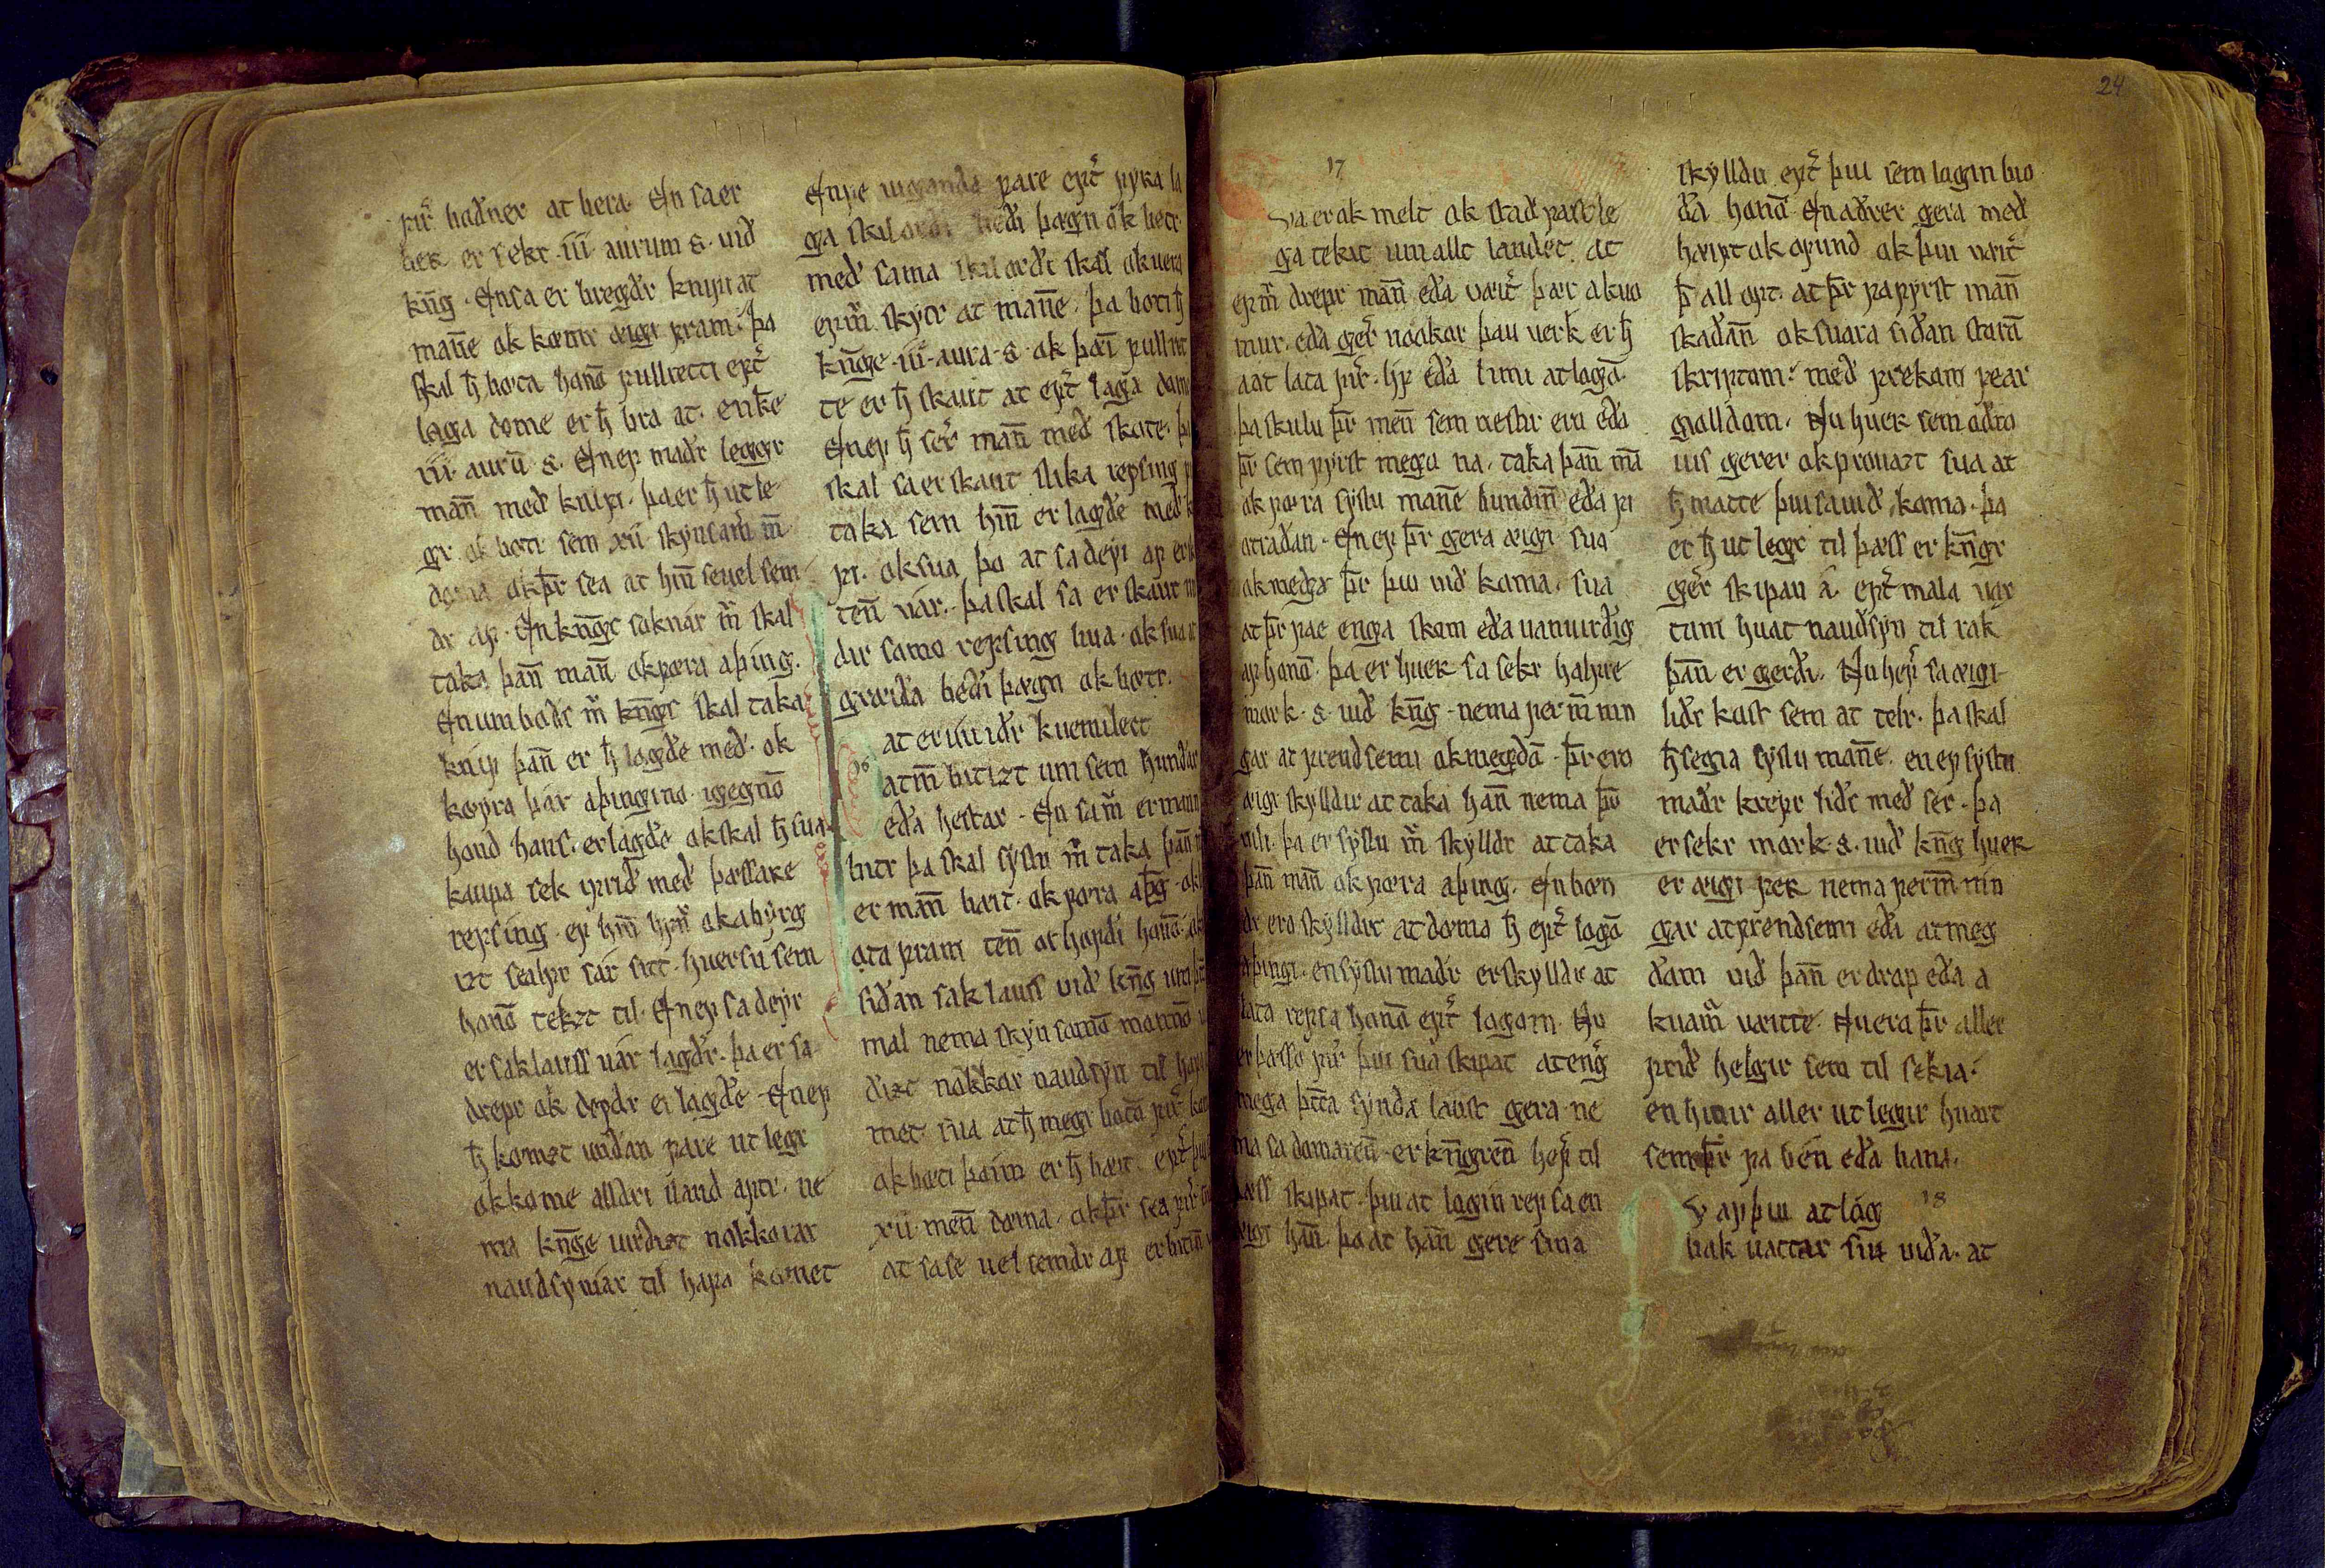 fyr̃ boðner at bera. En sa er
ber er sekr .iii. aurum s. uið
kng̅. En sa er bregðr knifi at
man̅e ok kømr æigi fram. þa
skal h̅ bøta hano̅ fullretti ept̃
laga dome er h̅ bra at. en k̅e
.iii. auru̅ s. En ef maðr leggr
man̅ með knifi. þa er h̅ utle
gr ok bøti sem .xii. skynsam̃ m̅
døma ok þr̃ sea at hin̅ se uel sem
dr af. En kng̅s soknar m̃ skal
taka þan̅ man̅ ok føra a þing.
En umboðs m̃ kng̅s skal taka
knif þan̅ er h̅ lagðe með. ok
køyra þar a þingino igegno̅
hond hans. er lagðe ok skal h̅ sua
kaupa sek ifrið með þæssare
refsing. ef hin̅ lifir ok abyrg
izt sealfr sar sitt. huersu sem
hano̅ tekzt til. En ef sa deyr
er saklauss uar lagðr. þa er sa
dræpr ok døyðr er lagðe. En ef
h̅ kømzt undan fare utlægr
ok kome alldri i land aptr. ne
ma kng̅e uirðizt nokkorar
nauðsyniar til hafa komet
En ue fare ept̃ fyka la
ga skal beði þægn ok bøtr
með sama skilorði skal ok uera
ef m̃ skytr at man̅e. þa bøti h̅
kng̅e .iii. aura s. ok þæi̅ fullret
te er h̅ skaut at ept̃ laga dom
En ef h̅ sær̃ man̅ með skote. þa
skal sa er skaut slika refsing
taka sem hin̅ er lagðe með k
fi. ok sua þo at sa deyi af er
ten̅ uar. þa skal sa er skaut
dir samo refsing bua. ok sua
græiða beði þægn ok bøtr.
at er ui uiðr kuemilect
16
at m̅ bitizt um sem hundar
eða hestar. En sa m̃ er mann
bitr þa skal syslu m̃ taka þan̅
er man̅ bæit. ok føra a þg̅. ok
ata fram ten̅ or hofði hano̅. ok
siðan saklauss uið kng̅
mal nema skynsamo̅ manno̅
ðizt nakkor nauðsyn til haf
met sua at h̅ megi bøta fyr̃
ok bøti þæim er h̅ bæit. ept̃ þui
.xii. men̅ døma. ok þr̃ sea fyr̃
at sa se uel semdr af er bitin̅
17
Sua er ok melt ok staðfastle
ga tekit um allt landet. at
ef m̃ drepr man̅ eða væit̃ þær akuo
mur. eða ger̃ noakor þau uerk er h̅
a at lata fyr̃. lif eða limi at lago̅.
þa skulu þr̃ men̅ sem nestir eru eða
þr̃ sem fyrst megu na. taka þan̅ ma̅
ok føra syslu man̅e bundin̅ eða fi
otraðan. En ef þr̃ gera æigi sua
ok mego þr̃ þui uið koma. sua
at þr̃ fae enga skom eða uanuirðig
af hano̅. þa er huer sa sekr halfre
mork .s. uið kng̅. nema þeim̅ min
gar at frendsemi ok mægðo̅. þr̃ ero
æigi skylldir at taka han̅ nema þr̃
uili. þa er syslu m̃ skylldr at taka
þan̅ man̅ ok føra a þing. En bøn
dr ero skylldir at døma h̅ ept̃ lago̅
a þingi. en syslumaðr er skylldr at
lata refsa hano̅ ept̃ lagom. Nu
er þæsso fyr̃ þui sua skipat at eng̃
mega þt̅ta synda laust gera ne
ma sa domaren̅ er kng̅ren̅ hef̃ til
þess skipat. þui at login refsa en
æigi han̅. þo at han̅ gere sina
24
skylldu ept̃ þui sem login bio
ða hono̅. En aðrer gera með
hæift ok ofund ok þui uærr̃
þr̃ all opt. at þr̃ fa fyrst man̅
skaðan̅ ok suara siðan storu̅
skriptom. með frekom fear
gialldom. Nu huer sem aðro
uis gerer ok prouazt sua at
h̅ matte þui sa uið koma. þa
er h̅ utlegr til þæss er kng̅r
ger̃ skipan a. ept̃ mala uax
tum huat nauðsyn til rak
þan̅ er gerði. Nu hef̃ sa æigi
liðr kost sem at telr. þa skal
h̅ segia syslu man̅e. en ef syslu
maðr krefr liðs með ser. þa
er sekr mork .s. uið kng̅ huer
er æigi fer nema þeim̅ min
gar at frendsemi eða at mæg
ðum uið þan̅ er drap eða a
kuam̃ uæitte. En uera þr̃ aller
frið helgir sem til sekia.
en hinir aller utlegir huart
sem þr̃ fa ben eða bana.
S af þui at log 18
bak uattar siu uiða. at